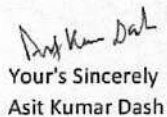 Asit Kumar Dash
Your's Sincerely
Asit Kumar Dash